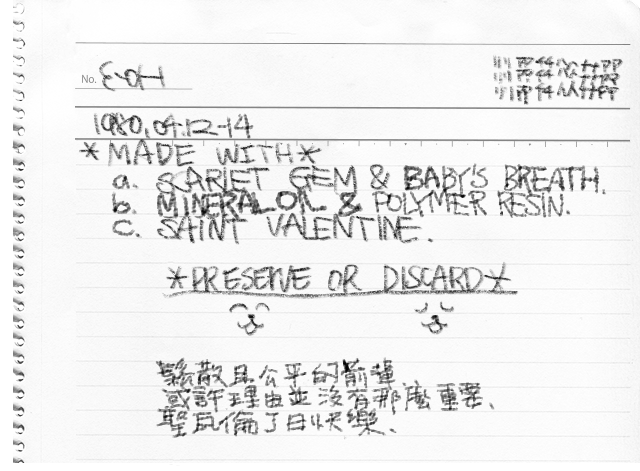 No. E-04
1980.04.12-14
*MADE WITH*
a. SCARLET GEM & BABY'S BREATH.
b. MINERAL OIL & POLYMER RESIN.
c. SAINT VALENTINE.
*PRESERVE OR DISCARD*
鬆散且公平的前輩、
或許理由並沒有那麼重要、
聖瓦倫丁日快樂、